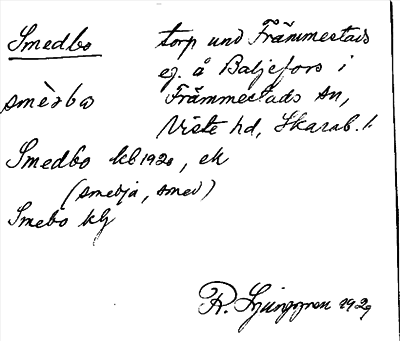 Smedbo torp und Främmestads
eg. å Baljefors i
smèdba Främmestads sn,
Viste hd, Skarab. l.
Smedbo kb 1920, ek
(smedja, smed)
Smebo kg
R. Ljunggren 1929